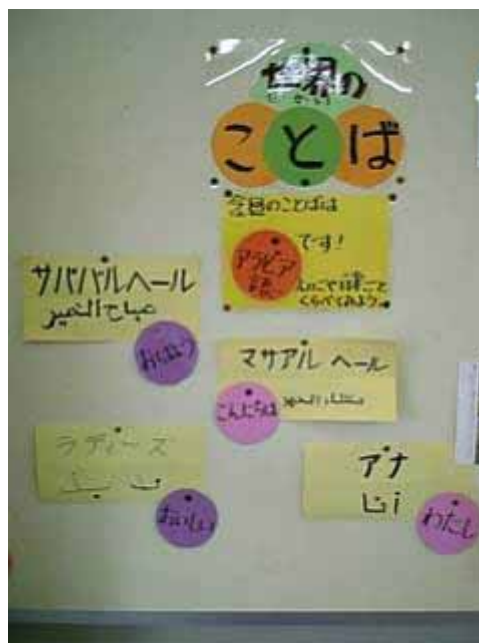 世界の
せかい
ことば
今回のことばは
アラビア語
です!
くらべてみよう
サバハルヘール
صباح الخير
おはよう
マサアル ヘール
مساء الخير
こんにちは
ラディーズ
لذيذ
おいしい
アナ
أنا
わたし